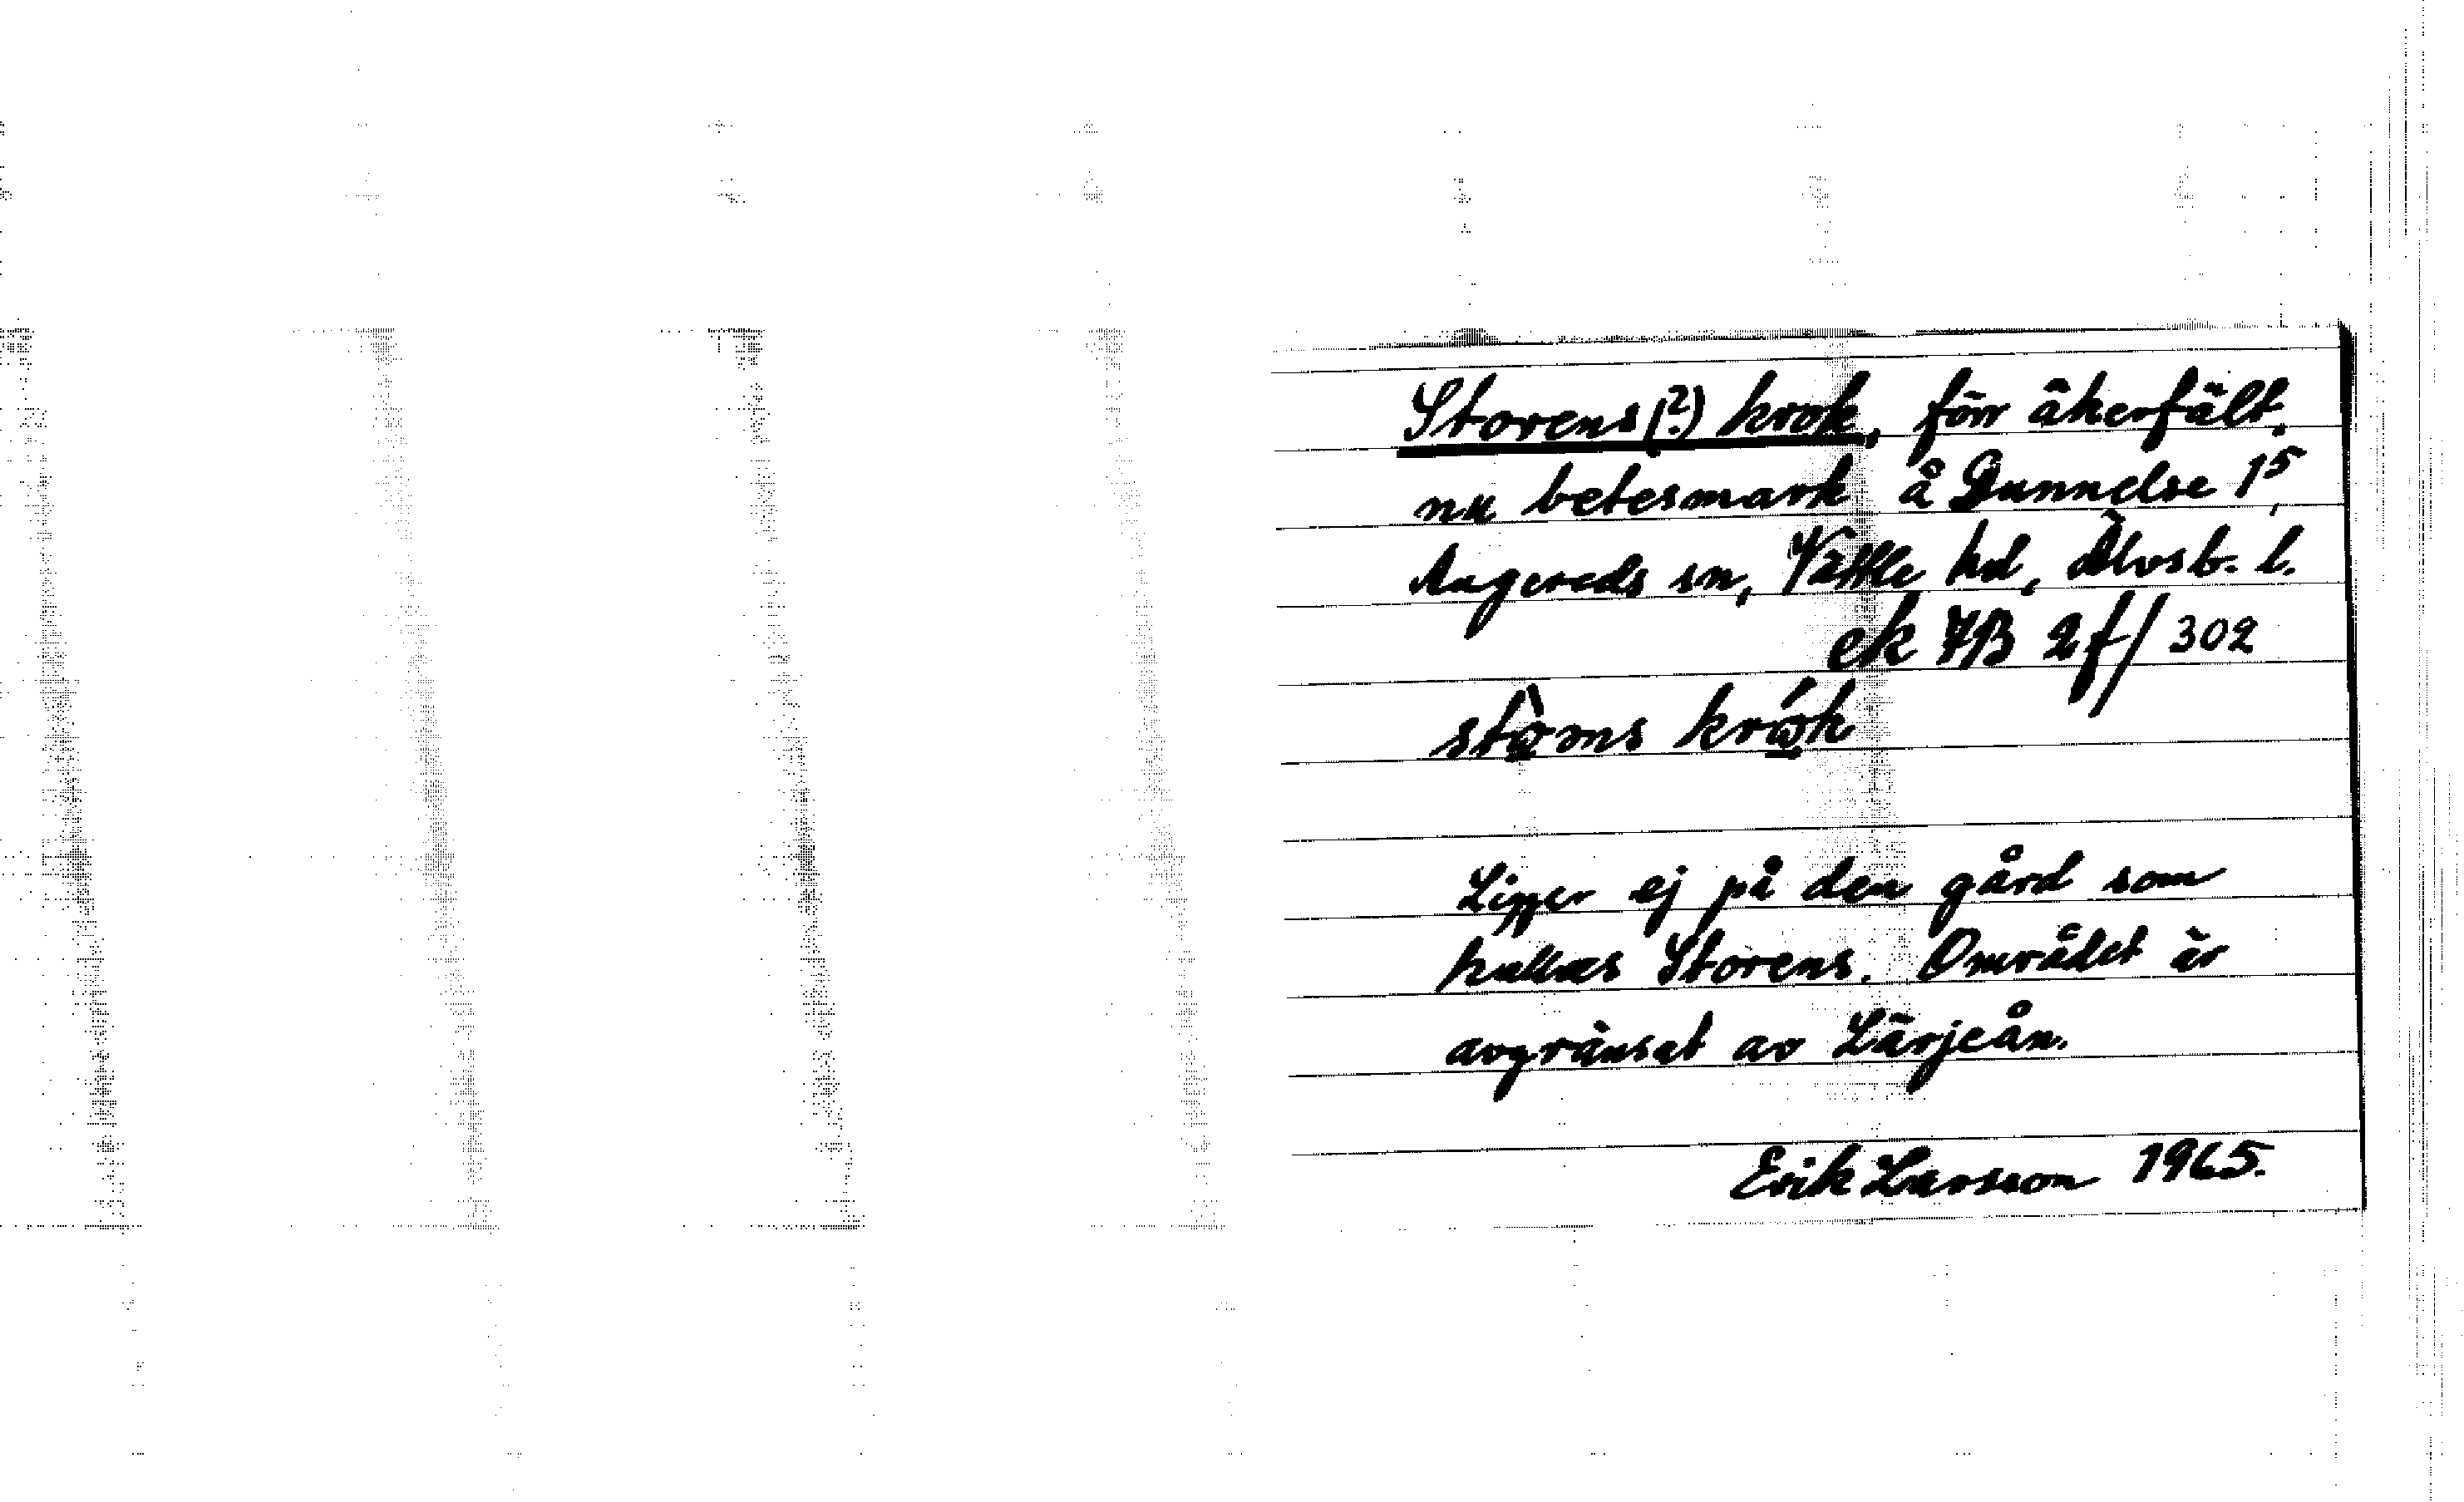 Storens(?) krok, förr åkerfält,
nu betesmark å Gunnelse 1⁵,
Angereds sn, Vättle hd, Älvsb. l.
ek 7B 2f/302
stoms krok
Ligger ej på den gård som
kallas Storens. Området är
avgränsat av Lärjeån.
Erik Larsson 1965.